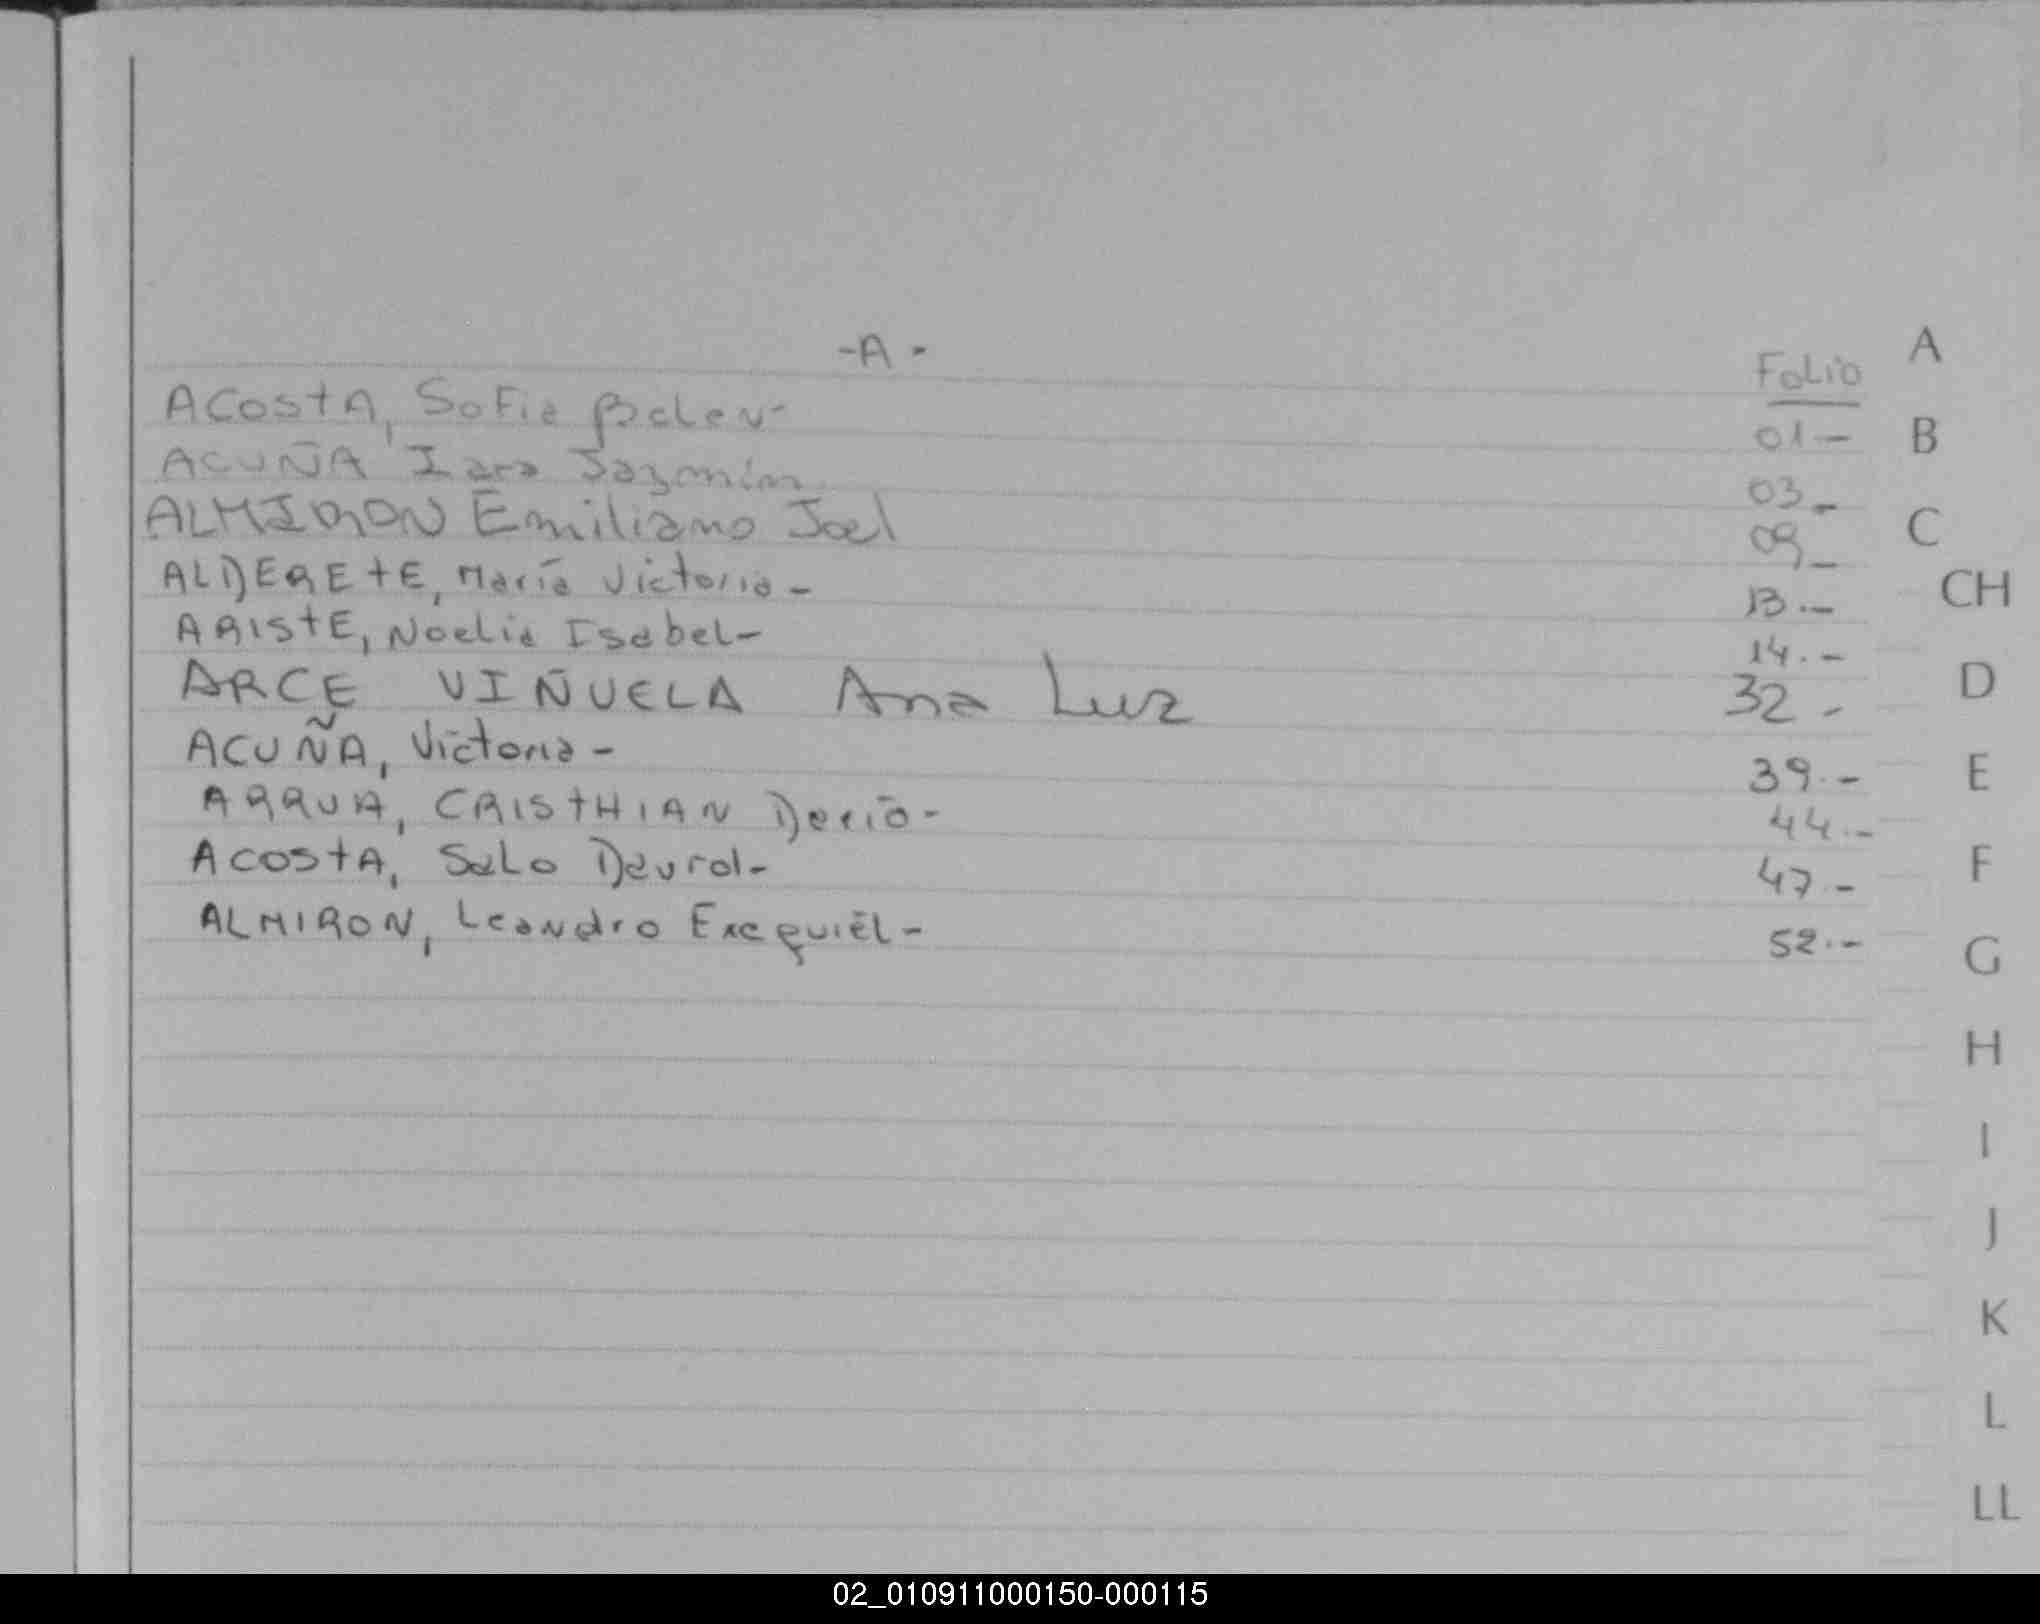 -A-
Folio
ACOSTA, Sofia Belen- 01-
ACUÑA Iara Jazmín 03-
ALMIRON Emiliano Joel 09-
ALDERETE, María Victoria- 13.-
ARISTE, Noelia Isabel- 14.-
ARCE VIÑUELA Ana Luz 32-
ACUÑA, Victoria- 39.-
ARRUA, CRISTHIAN Dario- 44.-
ACOSTA, 47.-
ALMIRON, Leandro Exequiel- 52.-
A
B
C
CH
D
E
F
G
H
I
J
K
L
LL
02_010911000150-000115